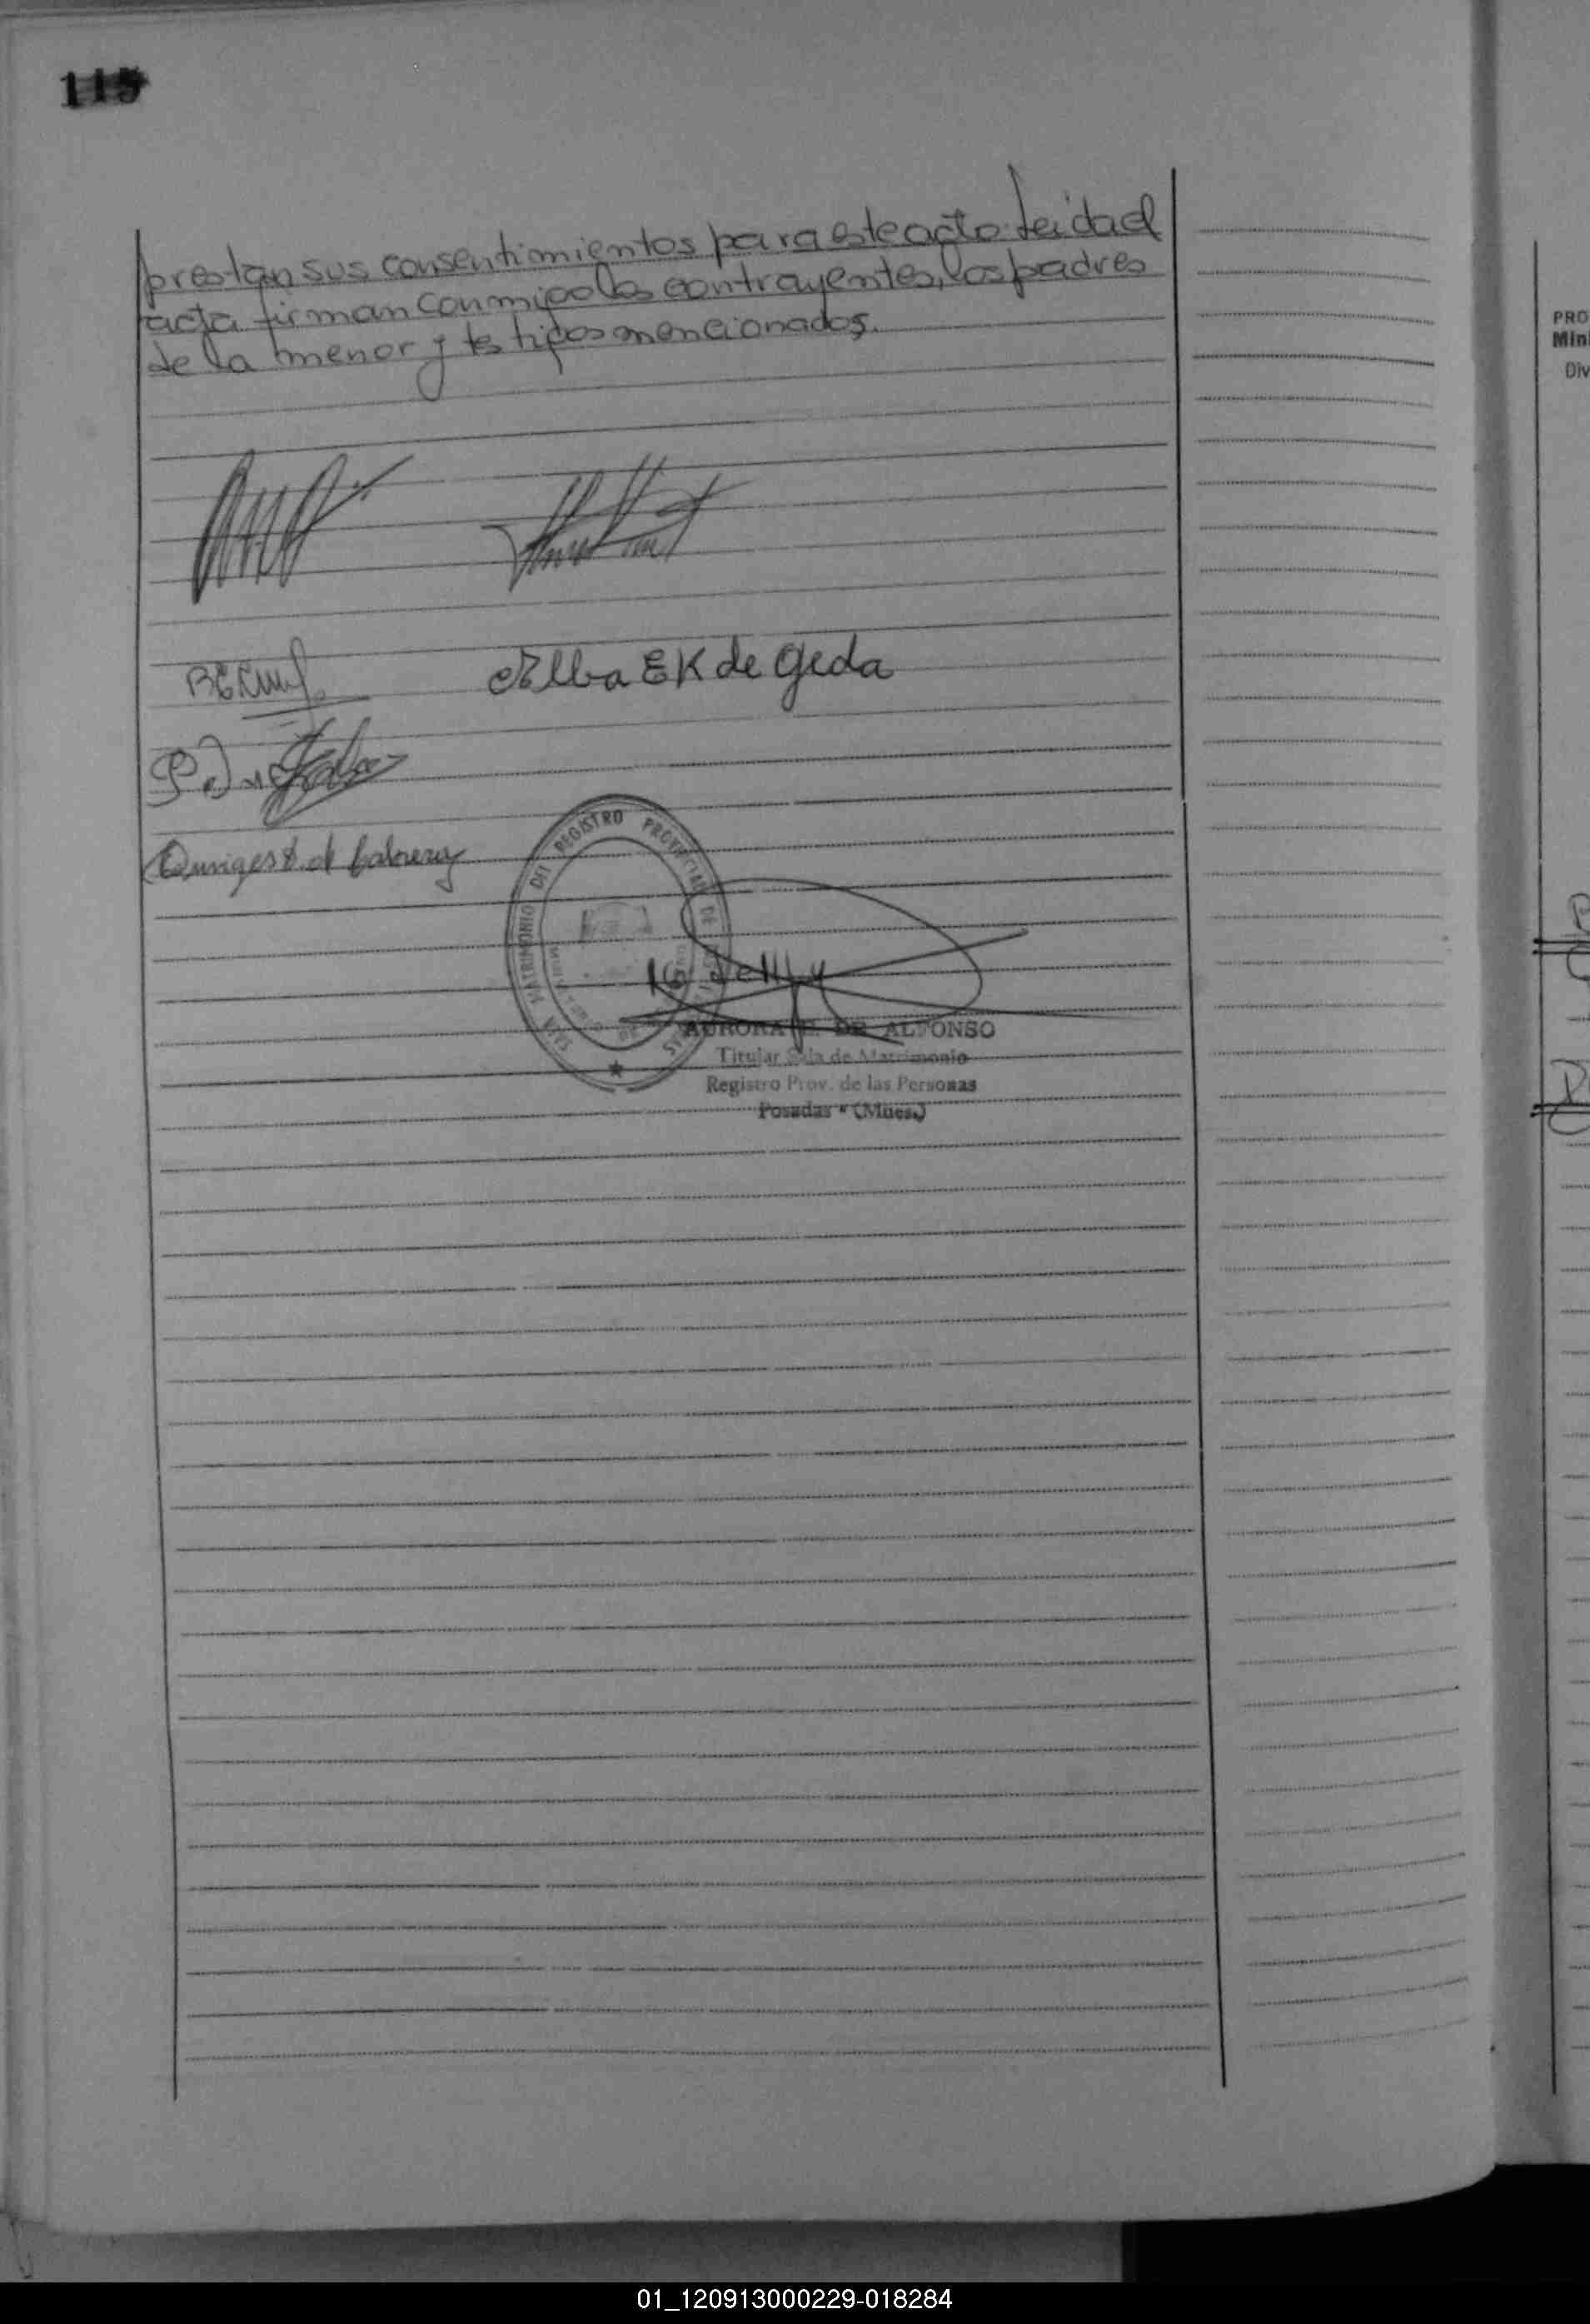 115
prestan sus consentimientos para este acto. Leída el
acta firman conmigo los contrayentes, los padres
de la menor y testigos mencionados.
Elba E K de Geda
de Cabrera
SALA MATRIMONIO DEL REGISTRO PROVINCIAL DE LAS
AURORA DE ALFONSO
Titular Sala de Matrimonio
Registro Prov. de las Personas
Posadas - (Mnes.)
PRO
Mini
Div
01_120913000229-018284